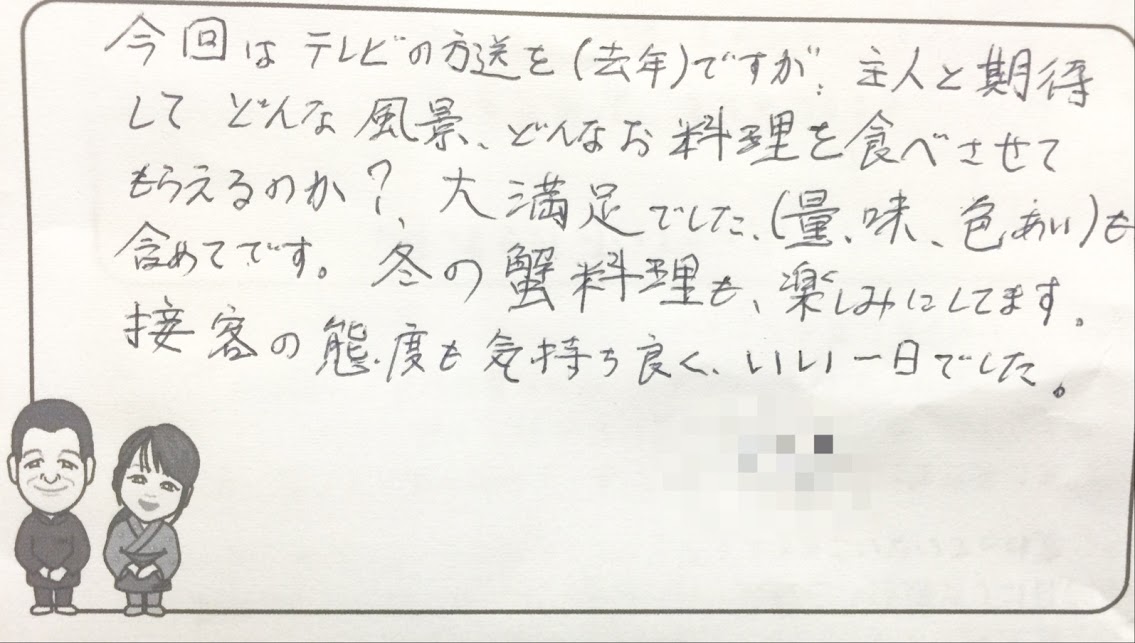 今回はテレビの方送を(去年)ですが、主人と期待
して どんな風景、どんなお料理を食べさせて
もらえるのか?、大満足でした、(量、味、色あい)も
含めてです。冬の蟹料理も、楽しみにしてます。
接客の態度も気持ち良く、いい一日でした。